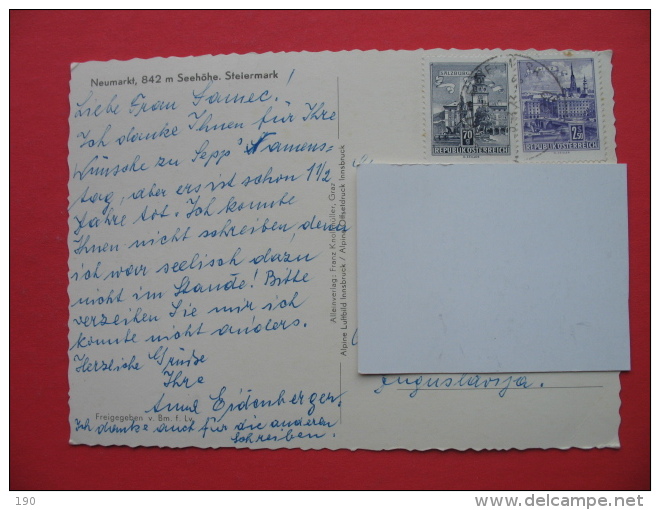 Neumarkt, 842 m Seehöhe. Steiermark
Liebe Frau Gamec!
Ich danke Ihnen für Ihre
Wünsche zu Sepp's Namens-
tag, aber er ist schon 1 1/2
Jahre tot. Ich konnte
Ihnen nicht schreiben, denn
ich war seelisch dazu
nicht im Stande! Bitte
verzeihen Sie mir ich
konnte nicht anders.
Herzliche Grüße
Ihre
Anna Eidenberger.
Freigegeben v. Bm. f. Lv.
Ich danke auch für die anderen
Schreiben.
Alleinverlag: Franz Knollmüller, Graz
Alpine Luftbild Innsbruck / Alpine Offsetdruck Innsbruck
SALZBURG
70 g
REPUBLIK ÖSTERREICH
2.50
REPUBLIK ÖSTERREICH
Jugoslavija.
190
delcampe.net